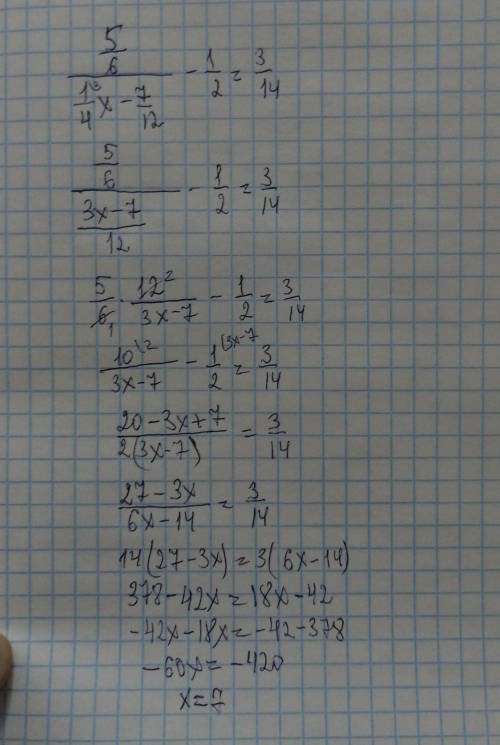 5/6 / (1/4^3 x - 7/12) - 1/2 = 3/14
5/6 / ((3x-7)/12) - 1/2 = 3/14
5/6₁ · 12²/(3x-7) - 1/2 = 3/14
10^\2/(3x-7) - 1^(3x-7/2 = 3/14
(20-3x+7)/(2(3x-7)) = 3/14
(27-3x)/(6x-14) = 3/14
14(27-3x)=3(6x-14)
378-42x=18x-42
-42x-18x=-42-378
-60x=-420
x=7